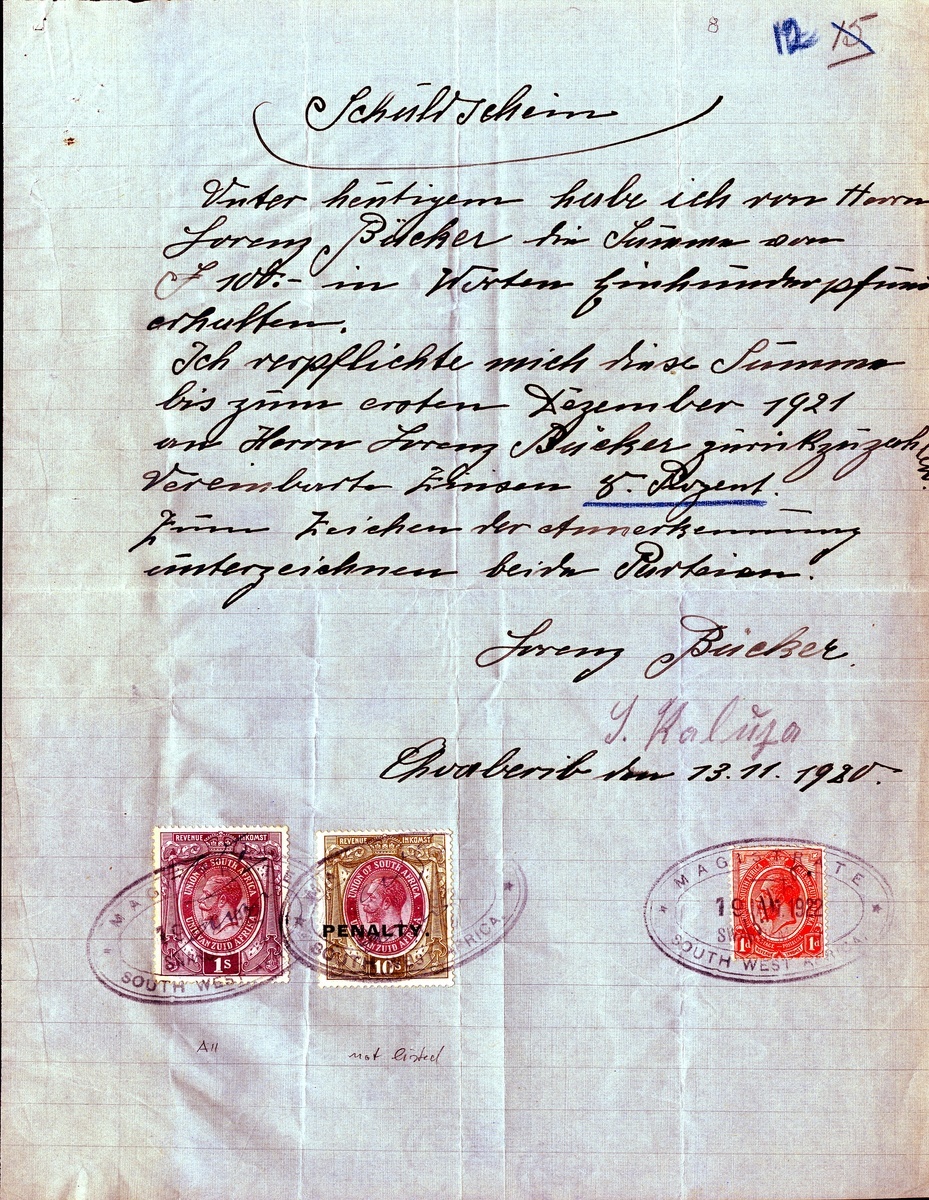 8
12 15
Schuldschein
Unter heutigem habe ich von Herrn
Lorenz Bücker die Summe von
£ 100.- in Worten Einhunderpfund
erhalten.
Ich verpflichte mich diese Summe
bis zum ersten Dezember 1921
an Herrn Lorenz Bücker zurükzuzahlen.
Vereinbarte Zinsen 8. Prozent.
Zum Zeichen der Annerkennung
unterzeichnen beide Parteien.
Lorenz Bücker.
S. Kaluza
den 13.11.1920.
REVENUE INKOMST
UNION OF SOUTH AFRICA
UNIE VAN ZUID AFRIKA
1s
SOUTH WEST
REVENUE INKOMST
UNION OF SOUTH AFRICA
UNIE VAN ZUID AFRIKA
PENALTY.
10s
SOUTH AFRICA
MAG TE
19 192
SOUTH WEST AFRICA
1d 1d
A11
not listed